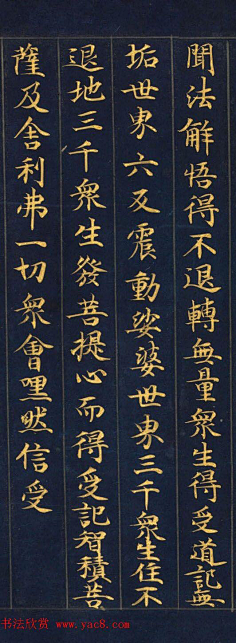 聞法解悟得不退轉無量衆生得受道記無
垢世界六反震動娑婆世界三千衆生住不
退地三千衆生發菩提心而得受記智積菩
薩及舍利弗一切衆會嘿然信受
书法欣赏 www.yac8.com